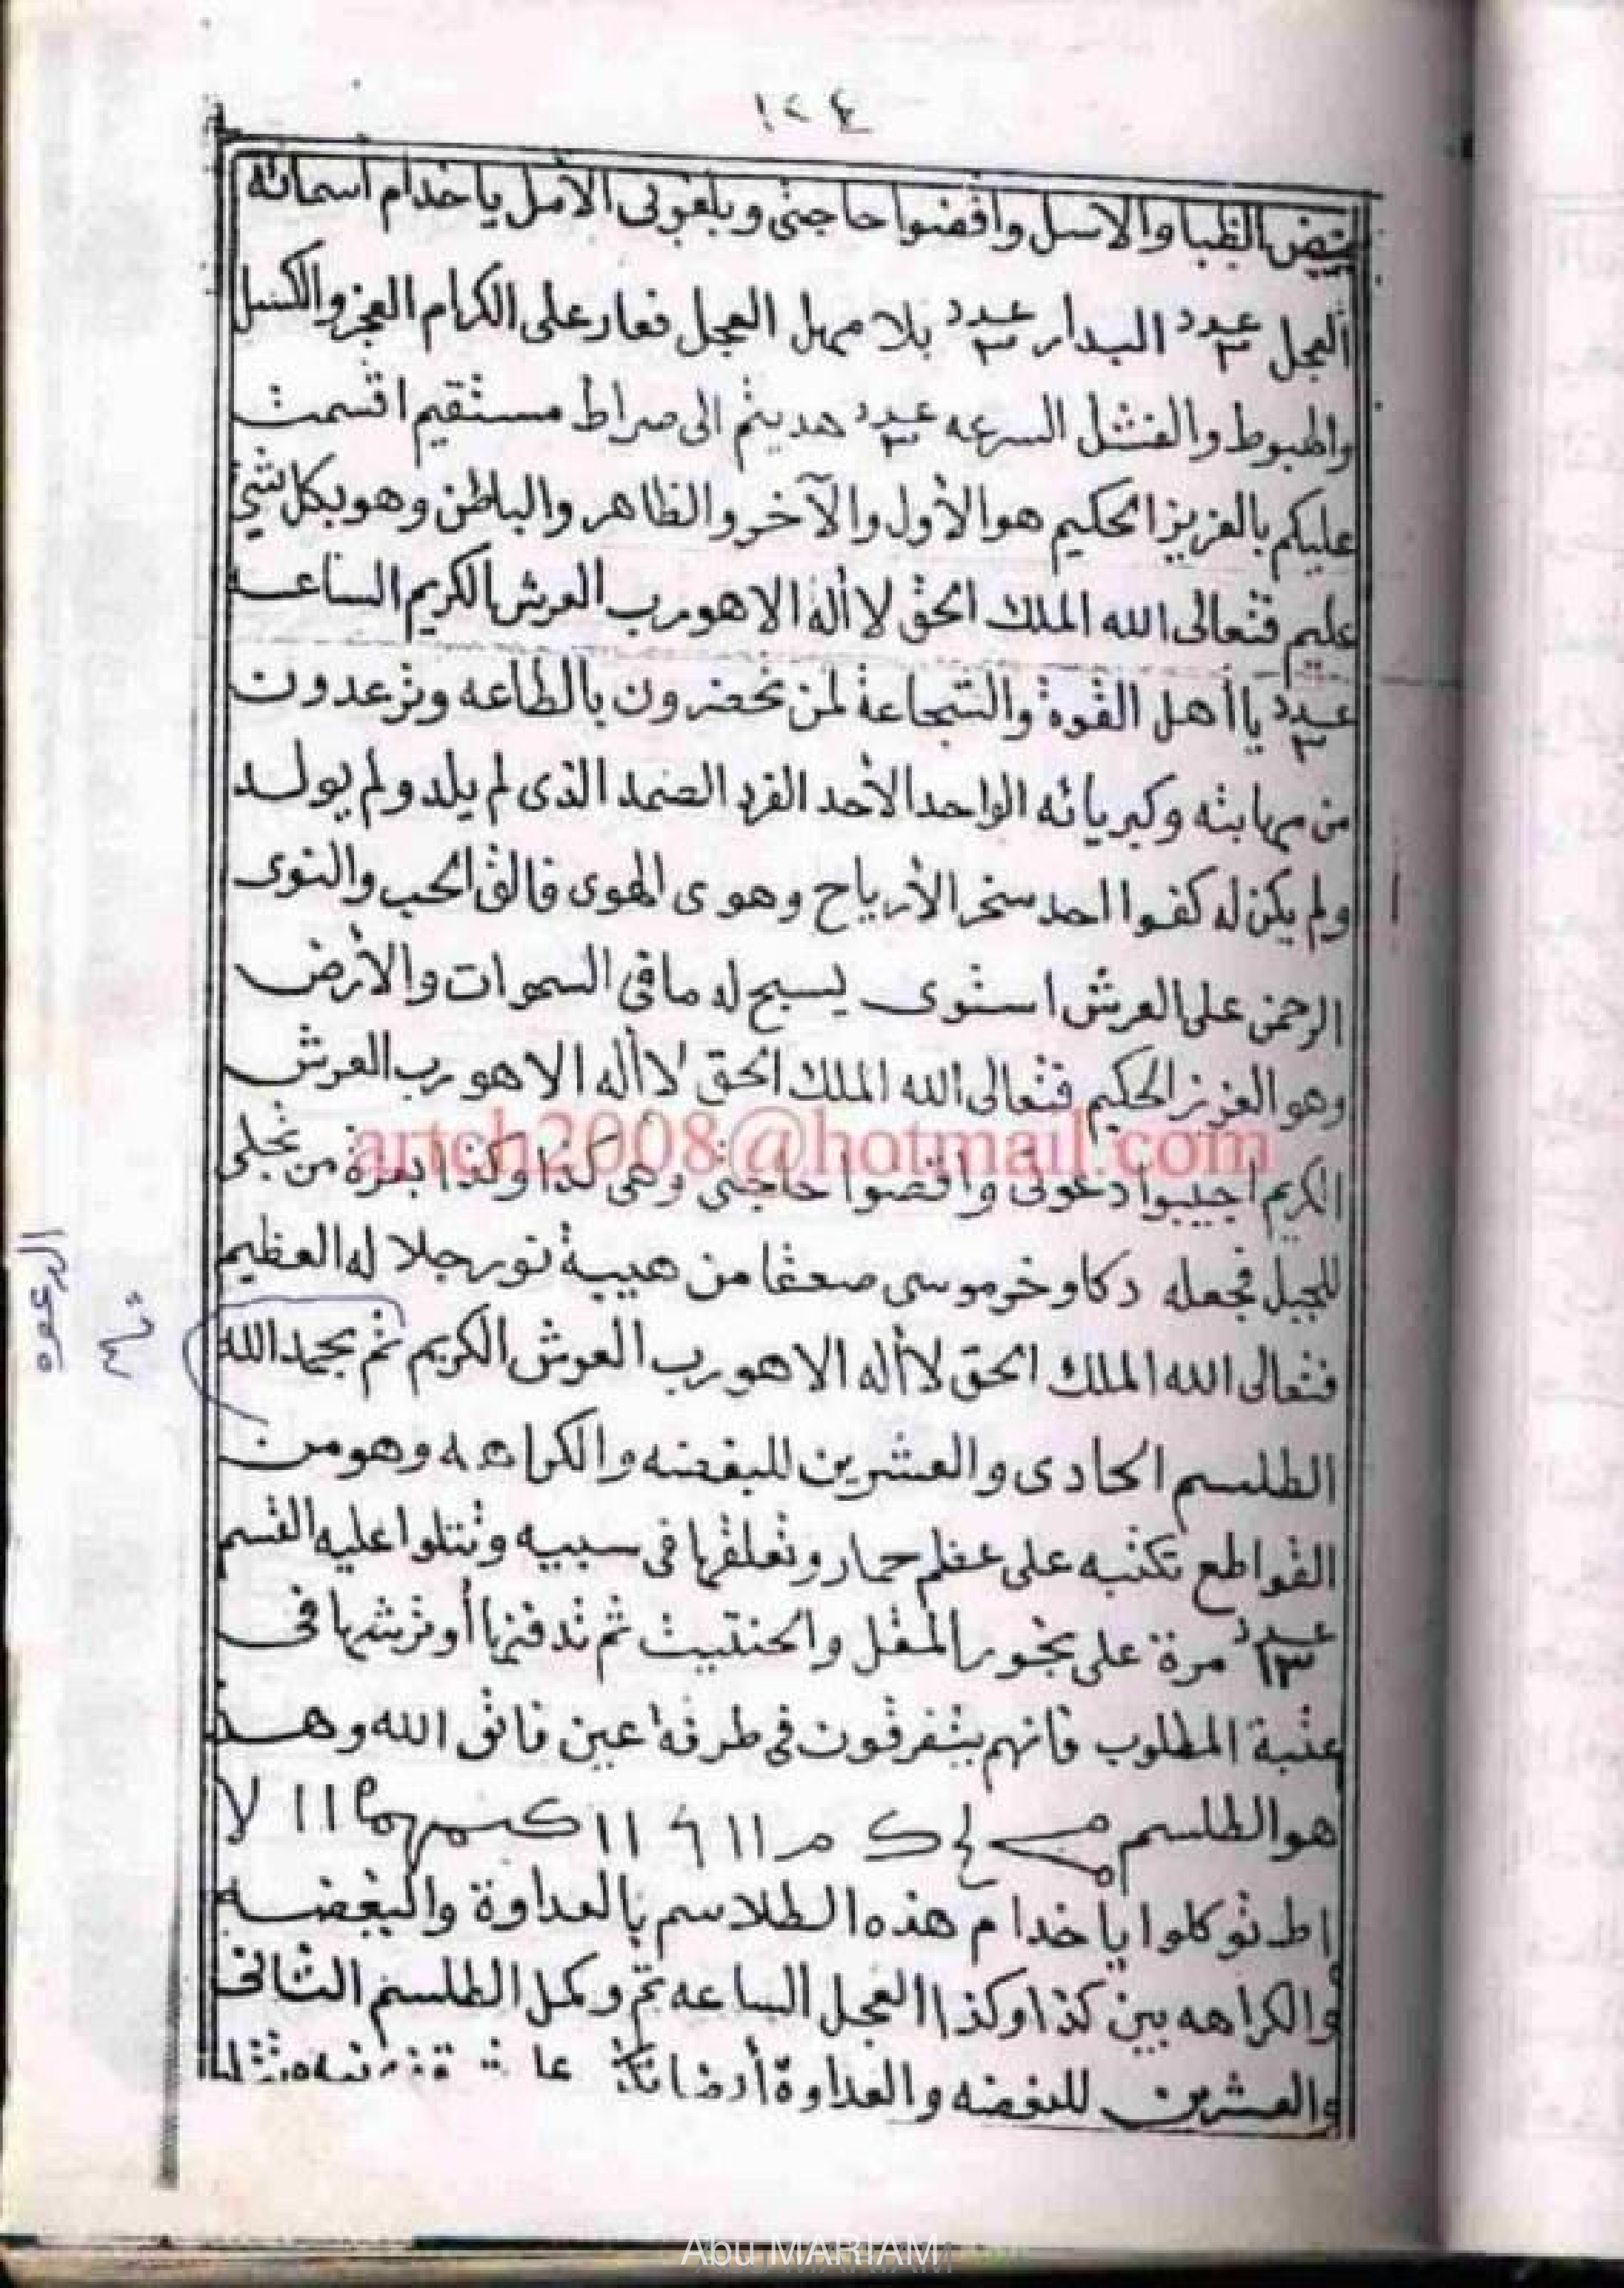 ١٢٤
بيض الظبا والاسل واقضوا حاجتى وبلغونى الأمل ياخدام اسمائه
ألعجل عدد ٣ البدار عدد ٣ بلا مهل العجل فعار على الكرام العجز والكسل
والهبوط والفشل السرعه عدد ٣ هديتم الى صراط مستقيم اقسمت
عليكم بالعزيز الحكيم هو الأول والآخر والظاهر والباطن وهو بكل شئ
عليم فتعالى الله الملك الحق لا أله الا هو رب العرش الكريم الساعه
عدد ٣ يا أهل القوة والشجاعة لمن تحضرون بالطاعه وترعدون
من مهابته وكبريائه الواحد الأحد الفرد الصمد الذى لم يلد ولم يولد
ولم يكن له كفوا احد سخر الأرياح وهوى الهوى فالق الحب والنوى
الرحمن على العرش استوى يسبح له ما فى السموات والأرض
وهو العزيز الحكيم فتعالى الله الملك الحق لا أله الا هو رب العرش
artch2008@hotmail.com
الكريم اجيبوا دعوتى واقضوا حاجتى وهى كذا وكذا بعزة من تجلى
للجبل فجعله دكا وخر موسى صعقا من هيبة نور جلاله العظيم
فتعالى الله الملك الحق لا أله الا هو رب العرش الكريم تم بحمد الله
الطلسم الحادى والعشرين للبغضه والكراهه وهو من
القواطع تكتبه على عظم حمار وتعلقها فى سيبه وتتلوا عليه القسم
عدد ١٣ مرة على بخور المقل والحنتيت ثم تدفنها أو ترشها فى
عتبة المطلوب فانهم يتفرقون فى طرفة عين فاتق الله وهذا
هو الطلسم
اط توكلوا يا خدام هذه الطلاسم بالعداوة والبغضه
والكراهه بين كذا وكذا العجل الساعه تم وكمل الطلسم الثانى
والعشرين للبغضه والعداوة
Abu MARIAM